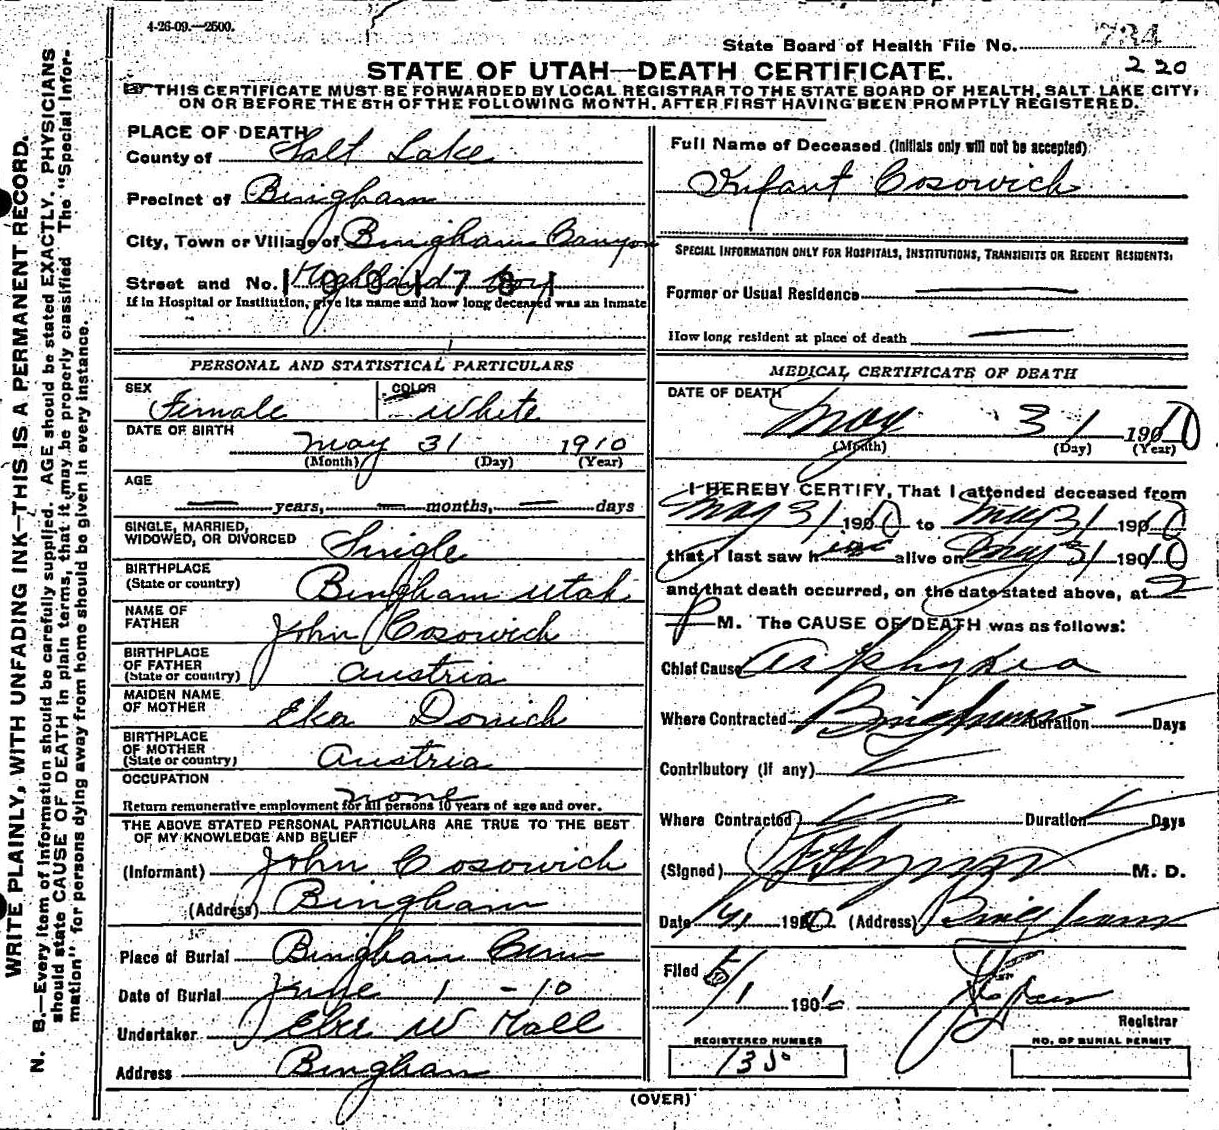 4-26-09.—2500.
State Board of Health File No. 734
220
STATE OF UTAH—DEATH CERTIFICATE.
THIS CERTIFICATE MUST BE FORWARDED BY LOCAL REGISTRAR TO THE STATE BOARD OF HEALTH, SALT LAKE CITY,
ON OR BEFORE THE 5TH OF THE FOLLOWING MONTH, AFTER FIRST HAVING BEEN PROMPTLY REGISTERED.
WRITE PLAINLY, WITH UNFADING INK—THIS IS A PERMANENT RECORD.
N. B.—Every item of information should be carefully supplied. AGE should be stated EXACTLY. PHYSICIANS
should state CAUSE OF DEATH in plain terms, that it may be properly classified The "Special Infor-
mation" for persons dying away from home should be given in every instance.
PLACE OF DEATH
County of Salt Lake
Precinct of Bingham
City, Town or Village of Bingham Canyon
Street and No. Highland Boy
If in Hospital or Institution, give its name and how long deceased was an inmate
PERSONAL AND STATISTICAL PARTICULARS
SEX Female
COLOR White
DATE OF BIRTH May 31 1910
(Month) (Day) (Year)
AGE
— years, — months, — days
SINGLE, MARRIED,
WIDOWED, OR DIVORCED Single
BIRTHPLACE
(State or country) Bingham Utah
NAME OF
FATHER John Cosowich
BIRTHPLACE
OF FATHER
(State or country) Austria
MAIDEN NAME
OF MOTHER Eka Donich
BIRTHPLACE
OF MOTHER
(State or country) Austria
OCCUPATION
none
Return remunerative employment for all persons 10 years of age and over.
THE ABOVE STATED PERSONAL PARTICULARS ARE TRUE TO THE BEST
OF MY KNOWLEDGE AND BELIEF
(Informant) John Cosowich
(Address) Bingham
Place of Burial Bingham Cem
Date of Burial June 1 - 10
Undertaker Eber W Hall
Address Bingham
Full Name of Deceased (Initials only will not be accepted)
Infant Cosowich
SPECIAL INFORMATION ONLY FOR HOSPITALS, INSTITUTIONS, TRANSIENTS OR RECENT RESIDENTS.
Former or Usual Residence —
How long resident at place of death —
MEDICAL CERTIFICATE OF DEATH
DATE OF DEATH
May 31 1910
(Month) (Day) (Year)
I HEREBY CERTIFY, That I attended deceased from
May 31 1910 to May 31 1910
that I last saw him alive on May 31 1910
and that death occurred, on the date stated above, at 2
P M. The CAUSE OF DEATH was as follows:
Chief Cause Asphyxia
Where Contracted Bingham Duration — Days
Contributory (if any)
Where Contracted Duration Days
(Signed) M. D.
Date 190 (Address) Bingham
Filed
190
Registrar
REGISTERED NUMBER
NO. OF BURIAL PERMIT
(OVER)